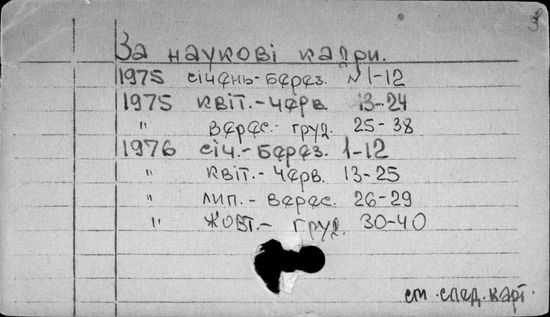 За наукові кадри.
1975 січань-бараз. N1-12
1975 квіт.-чарв. 13-24
" варас.-груд. 25-38
1976 січ.-бараз. 1-12
" квіт.-чарв. 13-25
" лип.-варас. 26-29
" жовт.-груд. 30-40
см.след.карт.